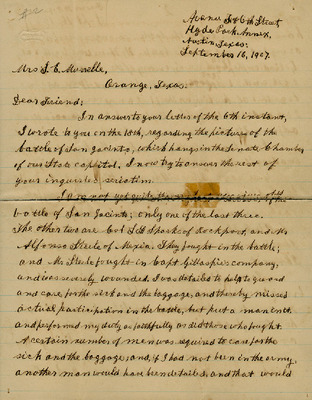 Avenue J & 6th Street
Hyde Park Annex,
Austin, Texas.
September 16, 1907.
Mrs J. C. Murelle,
Orange, Texas.
Dear Friend;
In answer to your letter of the 6th instant,
I wrote to you on the 10th, regarding the picture of the
battle of San Jacinto, which hangs in the Senate Chamber
of our State capitol. I now try to answer the rest of
your inquiries seriatim.
I am not quite the only survivor of the
battle of San Jacinto; only one of the last three.
The other two are Col J. H. Spark of Rockport, and Mr
Alfonso Steele of Mexia. They fought in the battle;
and Mr Steele fought in Capt. Gillaspie's company,
and was severely wounded. I was detailed to help to guard
and care for the sick and the baggage, and thereby missed
actual participation in the battle, but put a man in it
and performed my duty as faithfully as did those who fought.
A certain number of men was required to care for the
sick and the baggage; and, if I had not been in the army
another man would have been detailed, and that would